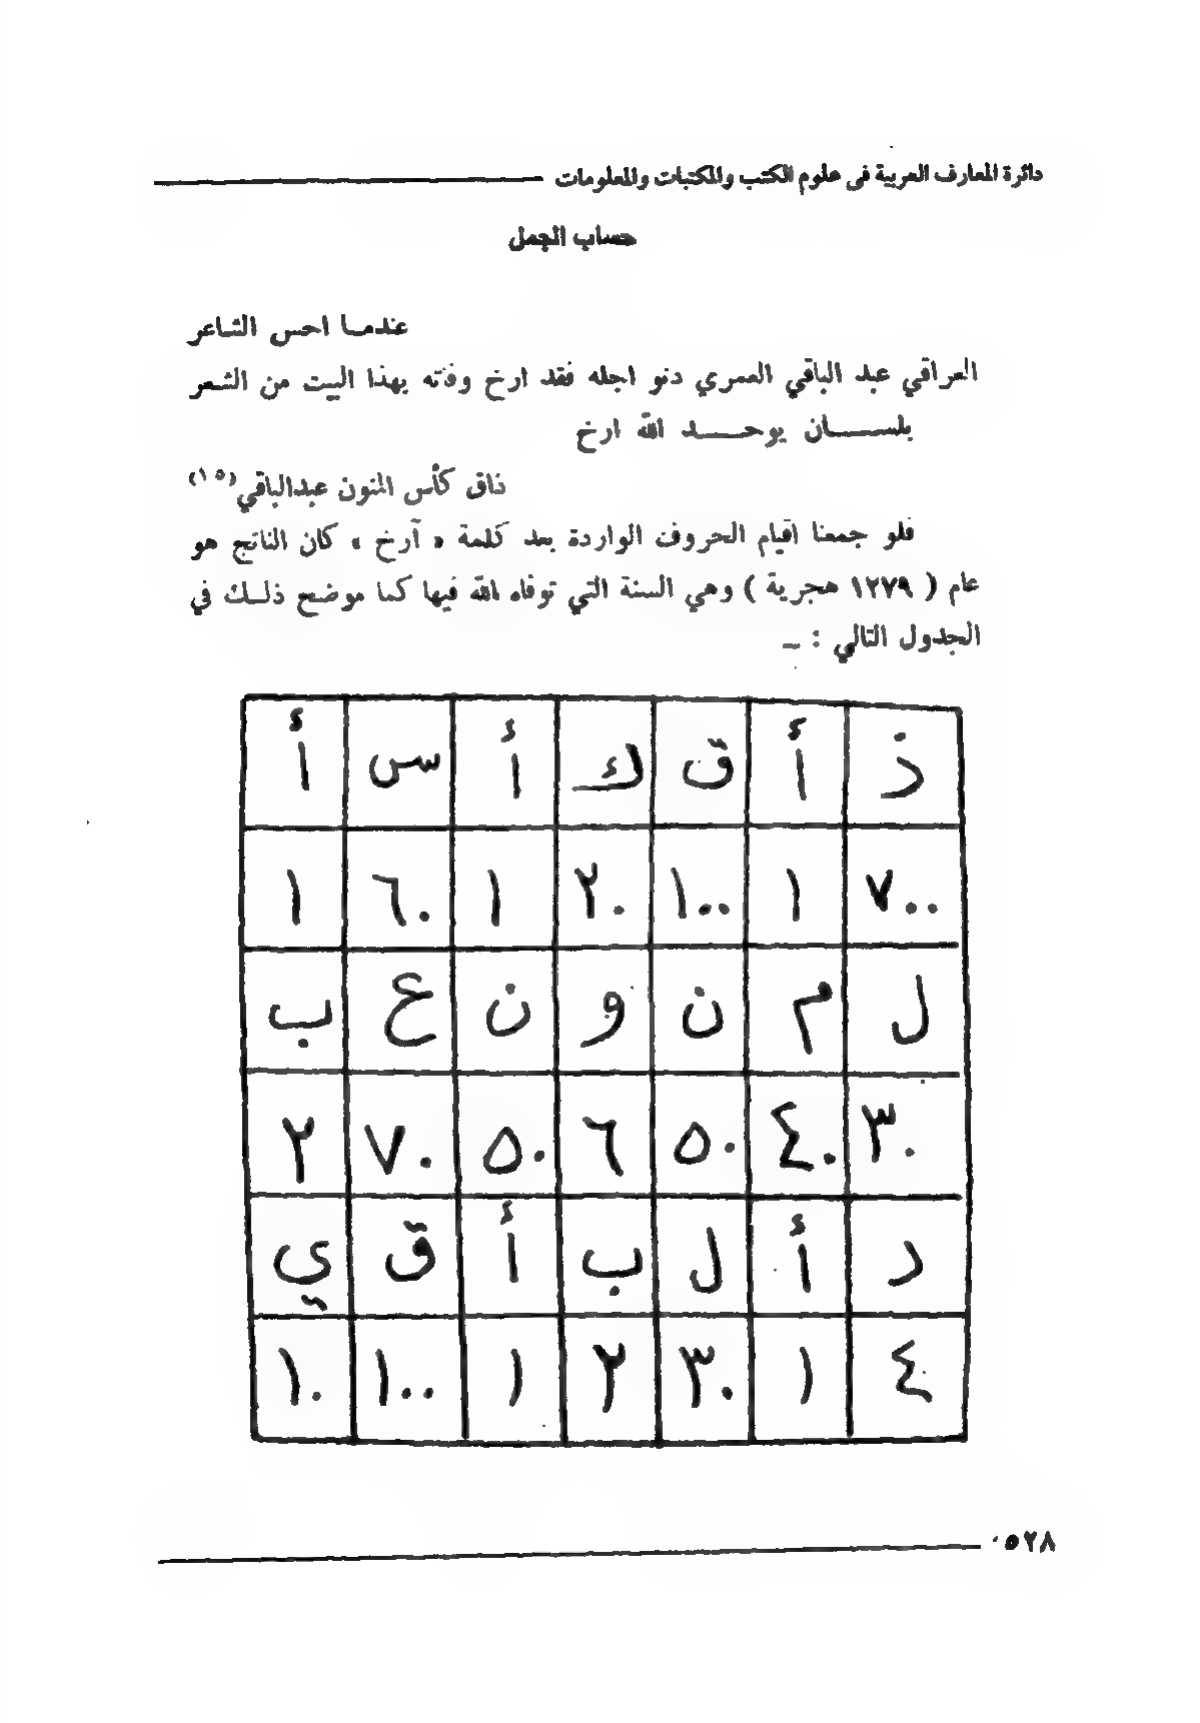 دائرة المعارف العربية فى علوم الكتب والمكتبات والمعلومات
حساب الجمل
عندمـا احس الشاعر
العراقي عبد الباقي العمري دنو اجله فقد ارخ وفاته بهذا البيت من الشعر
بلســـان يوحـــد الله ارخ
ذاق كأس المنون عبدالباقي(١٥)
فلو جمعنا اقيام الحروف الواردة بعد كلمة « آرخ » كان الناتج هو
عام ( ١٢٧٩ هجرية ) وهي السنة التي توفاه الله فيها كما موضح ذلـك في
الجدول التالي : ــ
ذ أ ق ك أ س أ
٧٠٠ ١ ١٠٠ ٢٠ ١ ٦٠ ١
ل م ن و ن ع ب
٣٠ ٤٠ ٥٠ ٦ ٥٠ ٧٠ ٢
د أ ل ب أ ق ي
٤ ١ ٣٠ ٢ ١ ١٠٠ ١٠
٥٢٨